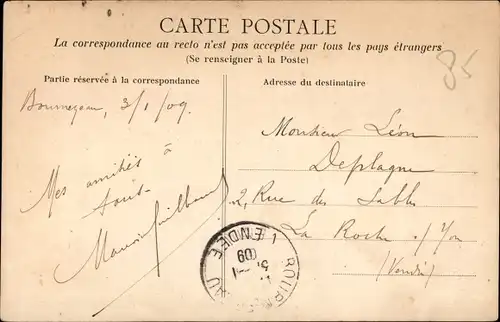 CARTE POSTALE
La correspondance au recto n'est pas acceptée par tous les pays étrangers
(Se renseigner à la Poste)
Partie réservée à la correspondance
Adresse du destinataire
85
3/1/09.
Mes amitiés à
tous
Monsieur Léon
Deplagne
2, Rue des Sables
La Roche s/ Yon
(Vendée)
VENDÉE
09